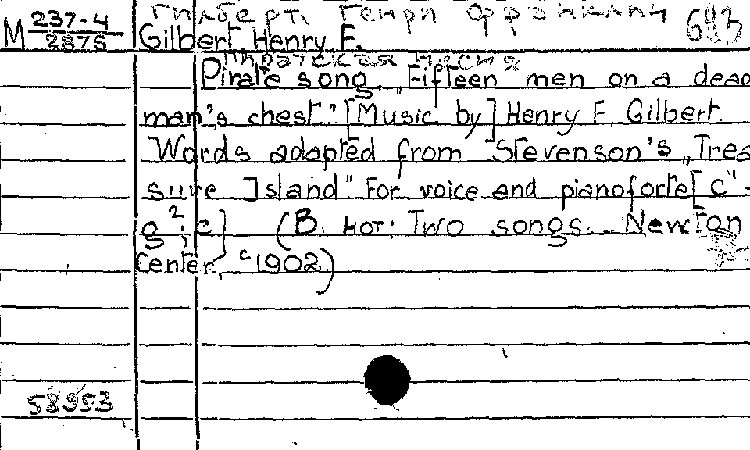 М 237-4 / 2875
Гилберт Генри Франклин 683
Gilbert, Henry F.
Пиратская песня
Pirate song „Fifteen men on a dead
man's chest." [Music by] Henry F. Gilbert.
Words adapted from Stevenson's „Trea
sure Island" For voice and pianoforte [c"-
g²; c] (В нот: Two songs. Newton
Center, c1902)
58953